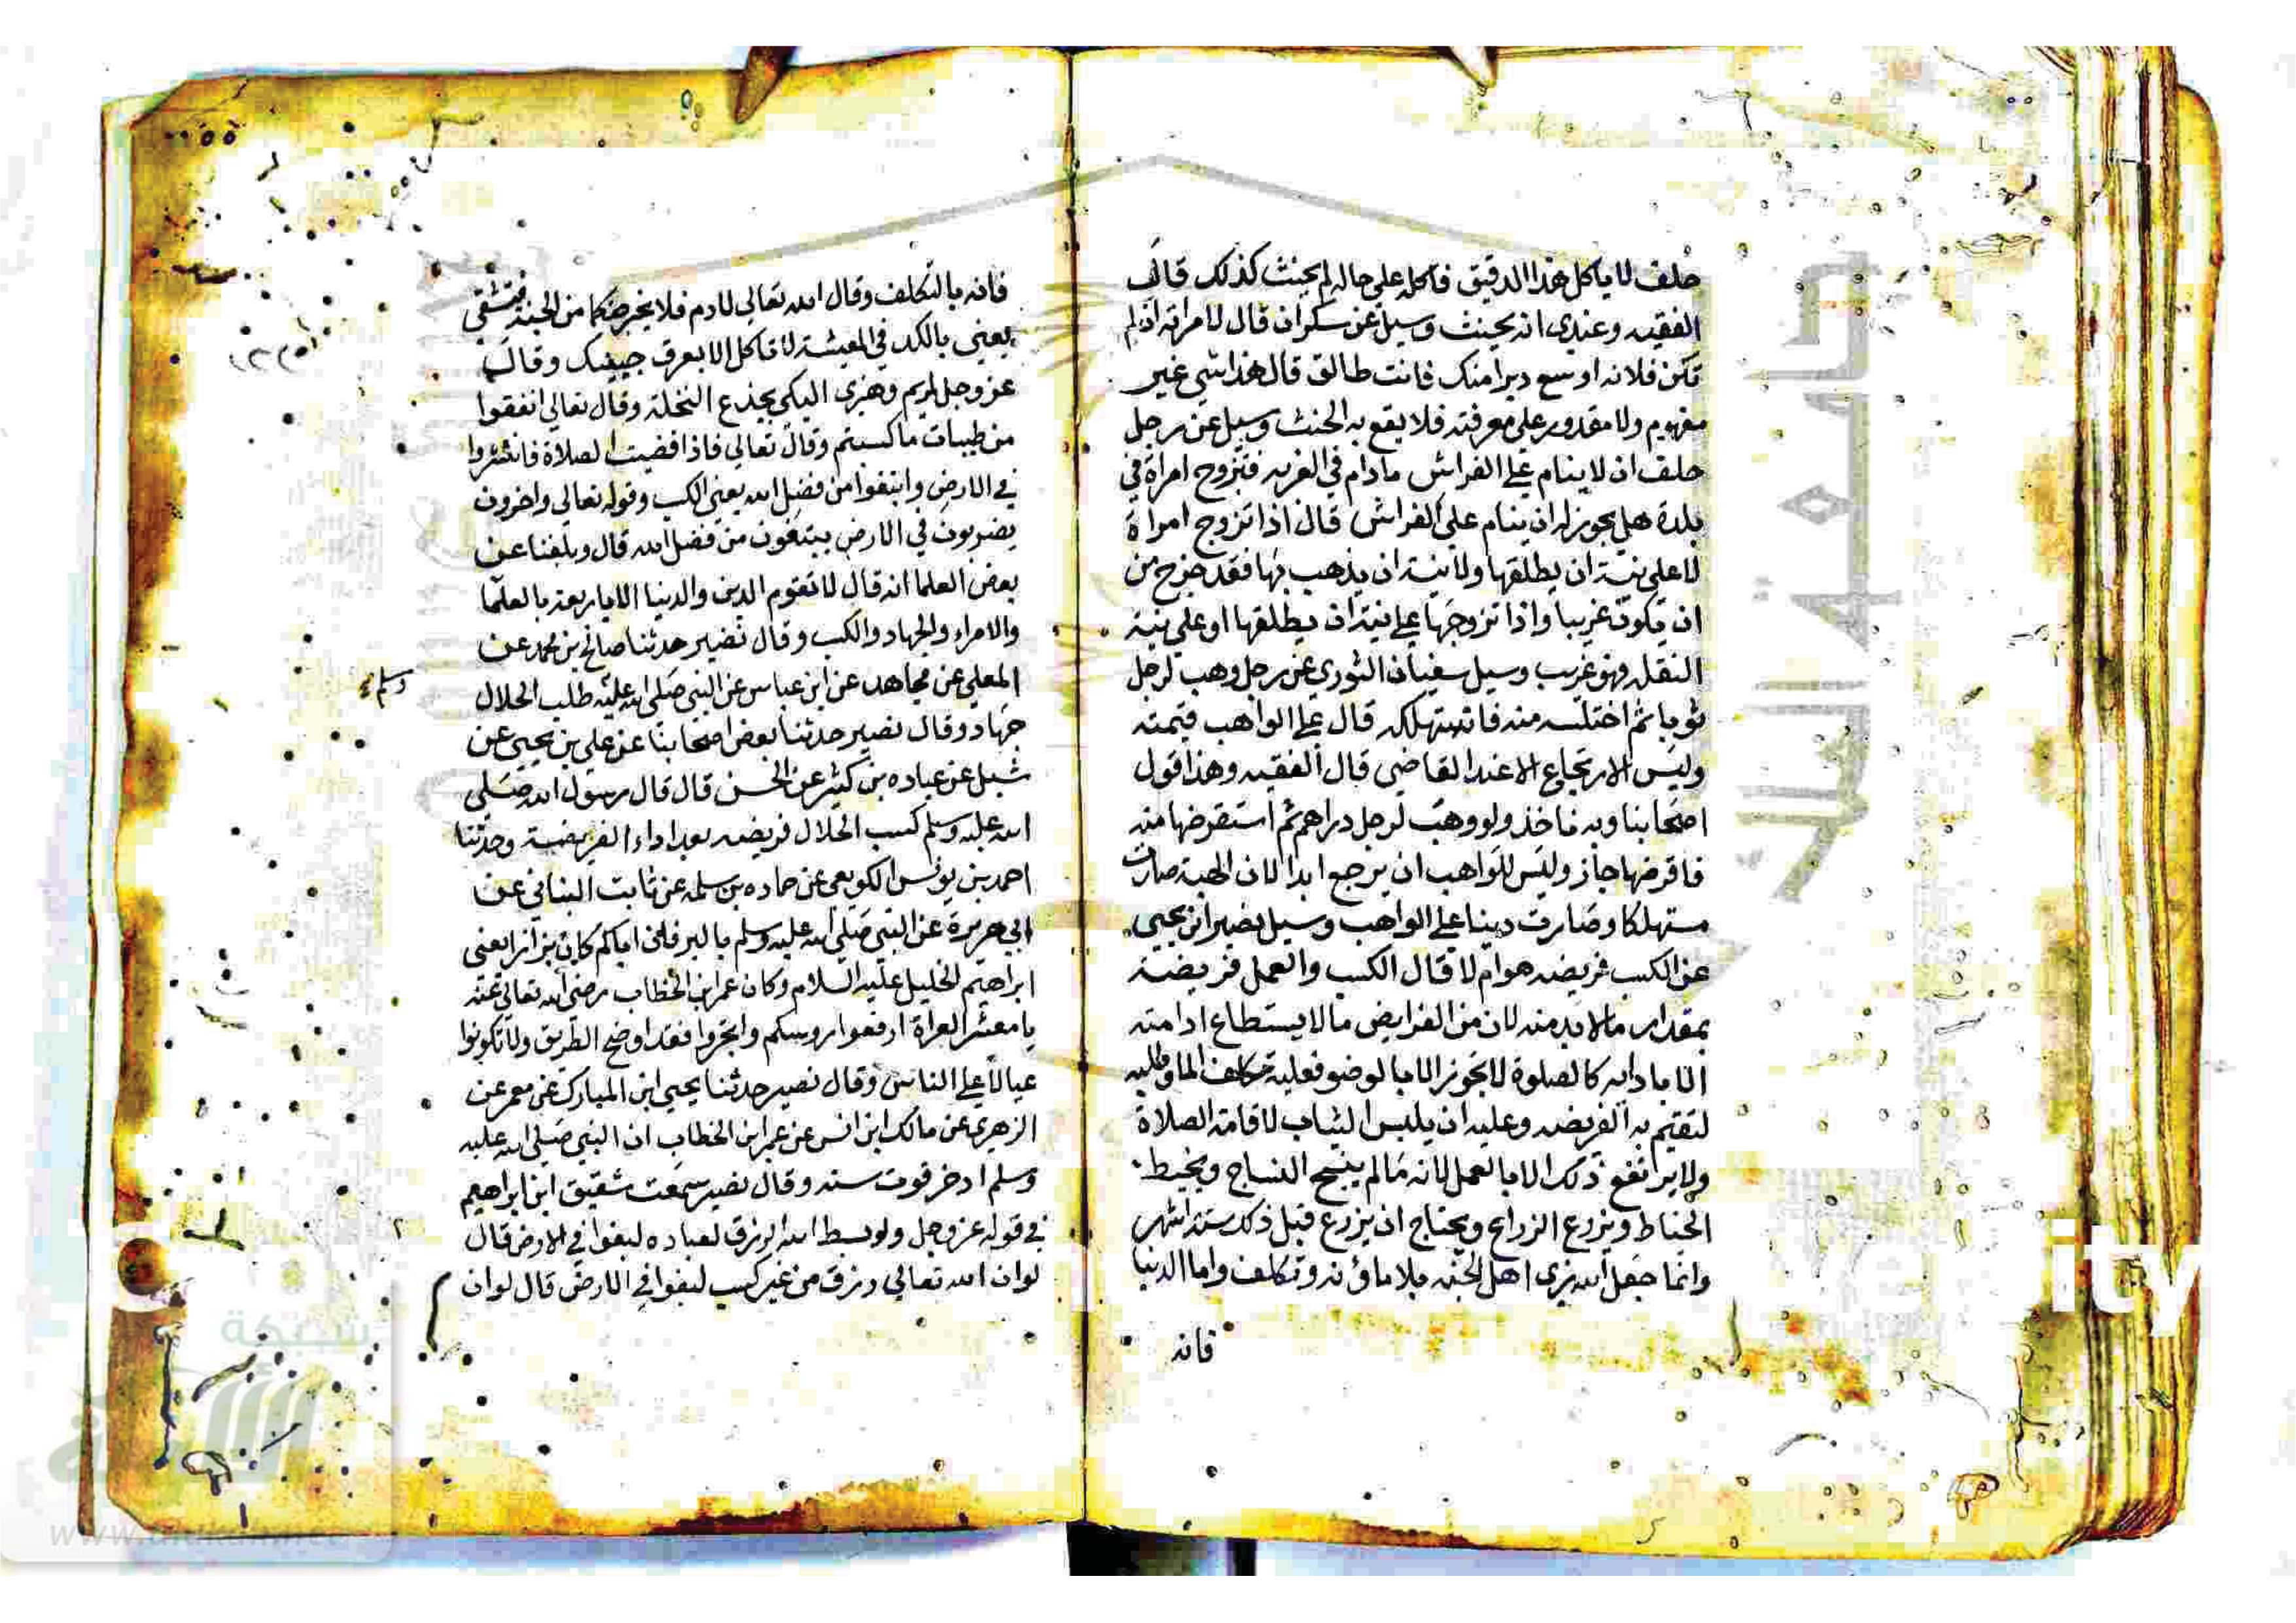 حلف لا ياكل هذا الدقيق فاكله على حاله لم يحنث كذلك قال
الفقيه وعندي انه يحنث وسيل عن سكران قال لامراته ان لم
تكن فلانه اوسع دبرا منك فانت طالق قال هذا شي غير
مفهوم ولا مقدور على معرفته فلا يقع به الحنث وسيل عن رجل
حلف ان لا ينام على الفراش مادام في الغربه فتزوج امراة في
بلدة هل يجوز له ان ينام على الفراش قال اذا تزوج امراة
لا على نية ان يطلقها ولا نية ان يذهب بها فقد خرج من
ان يكون غريبا واذا تزوجها على نية ان يطلقها او على نية
النقله فهو غريب وسيل سفيان الثوري عن رجل وهب لرجل
ثوبا ثم اختلسه منه فاستهلكه قال على الواهب قيمته
وليس الارتجاع الا عند القاضي قال الفقيه وهذا قول
اصحابنا وبه ناخذ ولو وهب لرجل دراهم ثم استقرضها منه
فاقرضها جاز وليس للواهب ان يرجع ابدا لان الهبة صارت
مستهلكا وصارت دينا على الواهب وسيل نصير ابن يحيى
عن الكسب فريضه هو ام لا قال الكسب والعمل فريضة
بمقدار ما لا بد منه لان من الفرايض ما لا يستطاع ادامته
الا باداه كالصلوة لا تجوز الا بالوضو فعليه تكلف الما وطلبه
لتقيم به الفريضه وعليه ان يلبس الثياب لاقامة الصلاة
ولا يرتفع ذلك الا بالعمل لانه ما لم ينسج النساج ويخيط
الخياط ويزرع الزراع ويحتاج ان يزرع قبل ذلك ستة اشهر
وانما جعل الله يرى اهل الجنه بلا ماؤنه وتكلف واما الدنيا
فانه
فانه بالتكلف وقال الله تعالى لادم فلا يخرجنكما من الجنة فتشقى
يعني بالكد في المعيشة لا تاكل الا بعرق جبينك وقال
عز وجل لمريم وهزى اليكي بجذع النخلة وقال تعالى انفقوا
من طيبات ما كسبتم وقال تعالى فاذا قضيت الصلاة فانتشروا
في الارض وابتغوا من فضل الله يعني الكسب وقوله تعالى واخرون
يضربون في الارض يبتغون من فضل الله قال وبلغنا عن
بعض العلما انه قال لا تقوم الدين والدنيا الا باربعة بالعلما
والامراء والجهاد والكسب وقال نصير حدثنا صالح بن محمد عن
المعلى عن مجاهد عن ابن عباس عن النبي صلى الله عليه طلب الحلال
وسلم
جهاد وقال نصير حدثنا بعض اصحابنا عن علي بن يحيى عن
شبل عن عباده بن كثير عن الحسن قال قال رسول الله صلى
الله عليه وسلم كسب الحلال فريضه بعد اداء الفريضة وحدثنا
احمد بن يونس عن حماده بن سلمه عن ثابت البناني عن
ابي هريرة عن النبي صلى الله عليه وسلم بالبر فان اباكم كان بزازا يعني
ابراهيم الخليل عليه السلام وكان عمر ابن الخطاب رضي الله تعالى عنه
يا معشر القراة ارفعوا روسكم واتجروا فقد اوضح الطريق ولا تكونوا
عيالا على الناس وقال نصير حدثنا يحيى ابن المبارك عن معمر عن
الزهري عن مالك ابن انس عن عمر ابن الخطاب ان النبي صلى الله عليه
وسلم ادخر قوت سنه وقال نصير سمعت شقيق ابن ابراهيم
في قوله عز وجل ولو بسط الله الرزق لعباده لبغوا في الارض قال
لو ان الله تعالى رزق من غير كسب لبغوا في الارض قال لو ان
شبكة